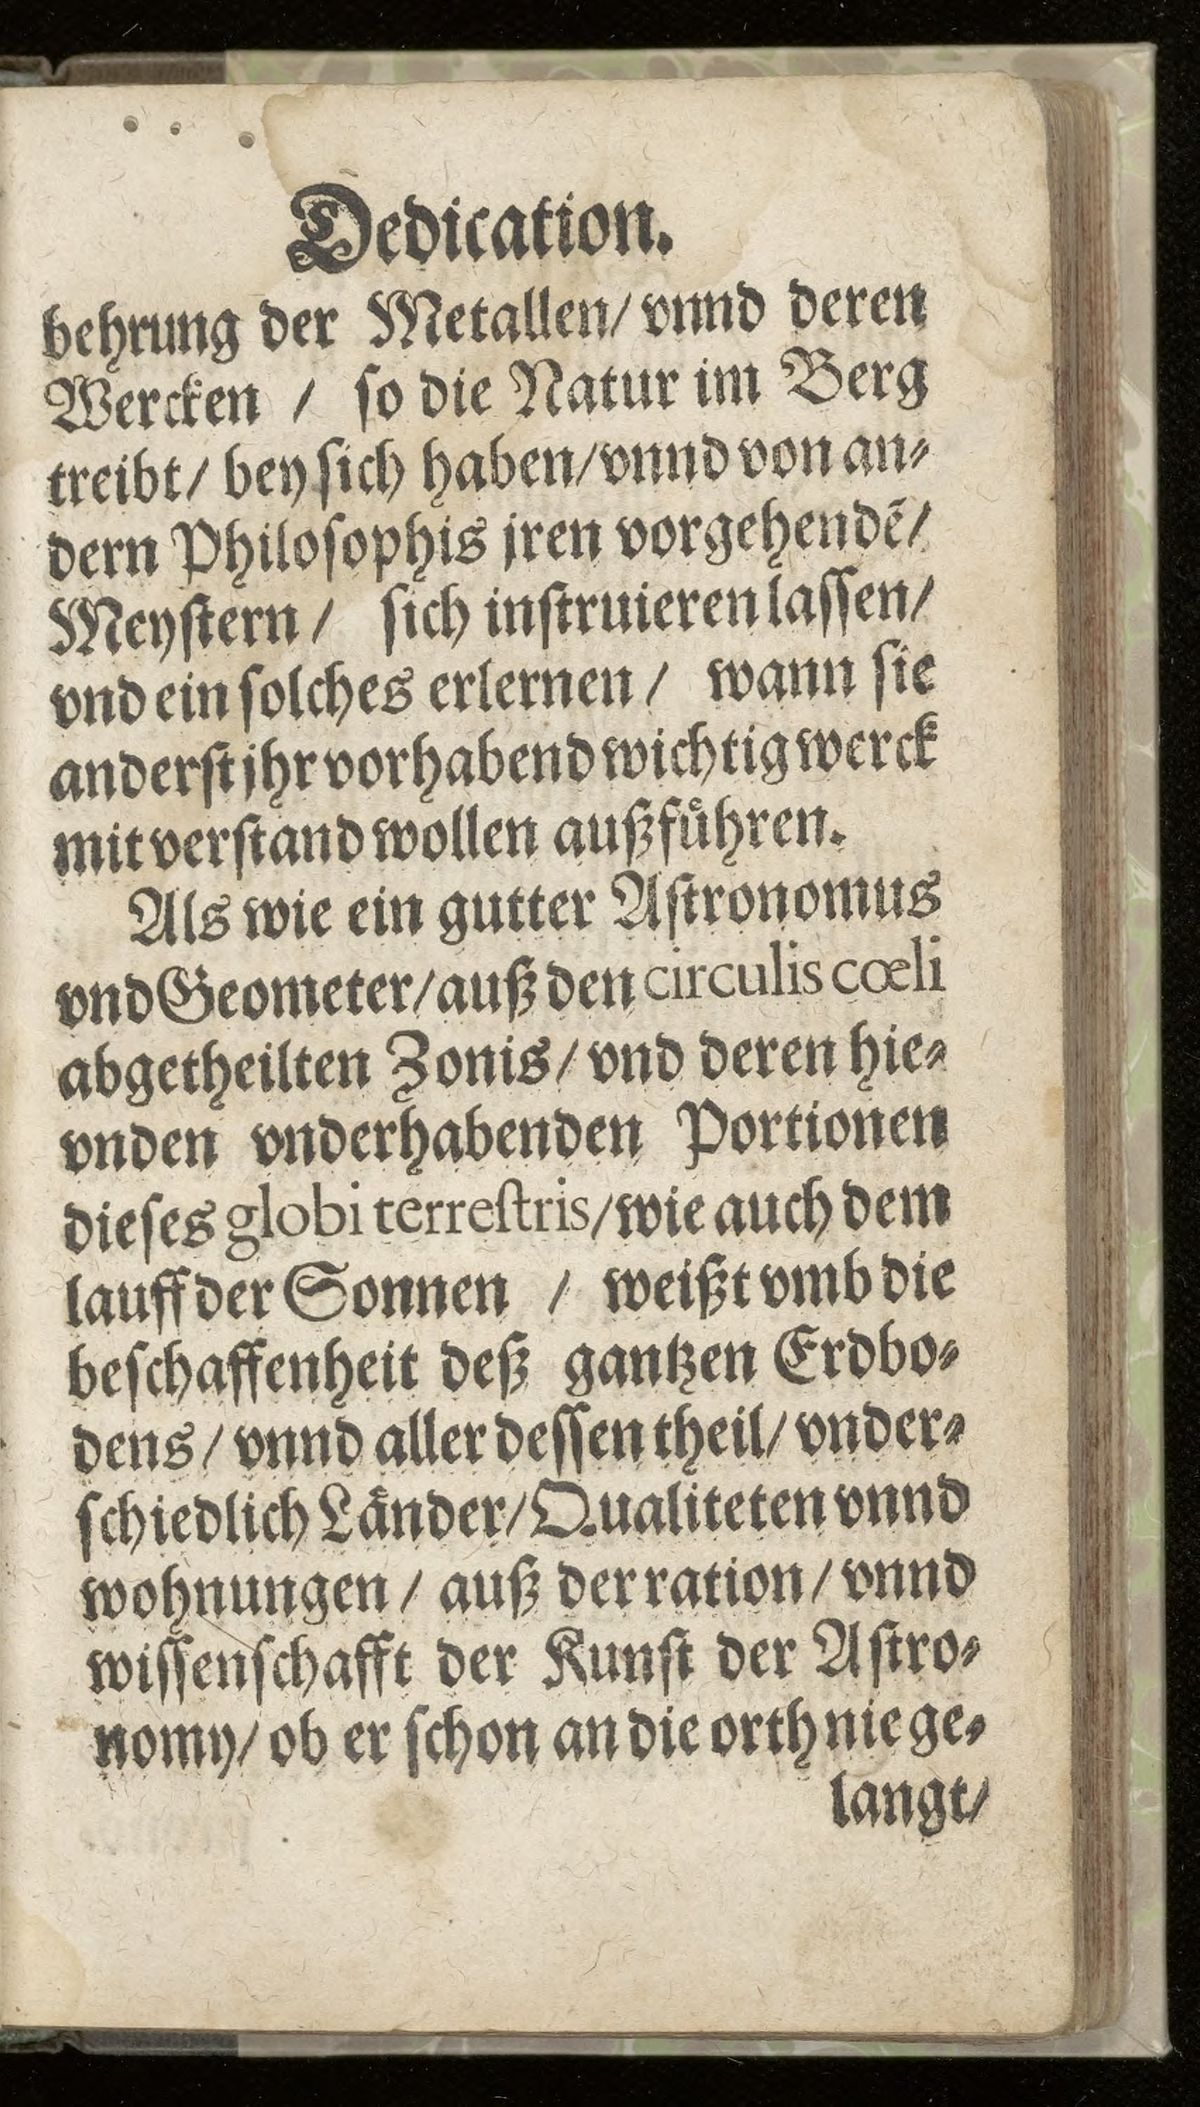 Dedication.
behrung der Metallen/ vnnd deren
Wercken / ſo die Natur im Berg
treibt/ bey ſich haben/ vnnd von an⸗
dern Philoſophis jren vorgehendẽ/
Meyſtern / ſich inſtruieren laſſen/
vnd ein ſolches erlernen / wann ſie
anderſt jhr vorhabend wichtig werck
mit verſtand wollen außfuͤhren.
Als wie ein gutter Aſtronomus
vnd Geometer/ auß den circulis cœli
abgetheilten Zonis/ vnd deren hie⸗
vnden vnderhabenden Portionen
dieſes globi terreſtris/ wie auch dem
lauff der Sonnen / weißt vmb die
beſchaffenheit deß gantzen Erdbo⸗
dens/ vnnd aller deſſen theil/ vnder⸗
ſchiedlich Laͤnder/ Qualiteten vnnd
wohnungen / auß der ration / vnnd
wiſſenſchafft der Kunſt der Aſtro⸗
nomy/ ob er ſchon an die orth nie ge⸗
langt/